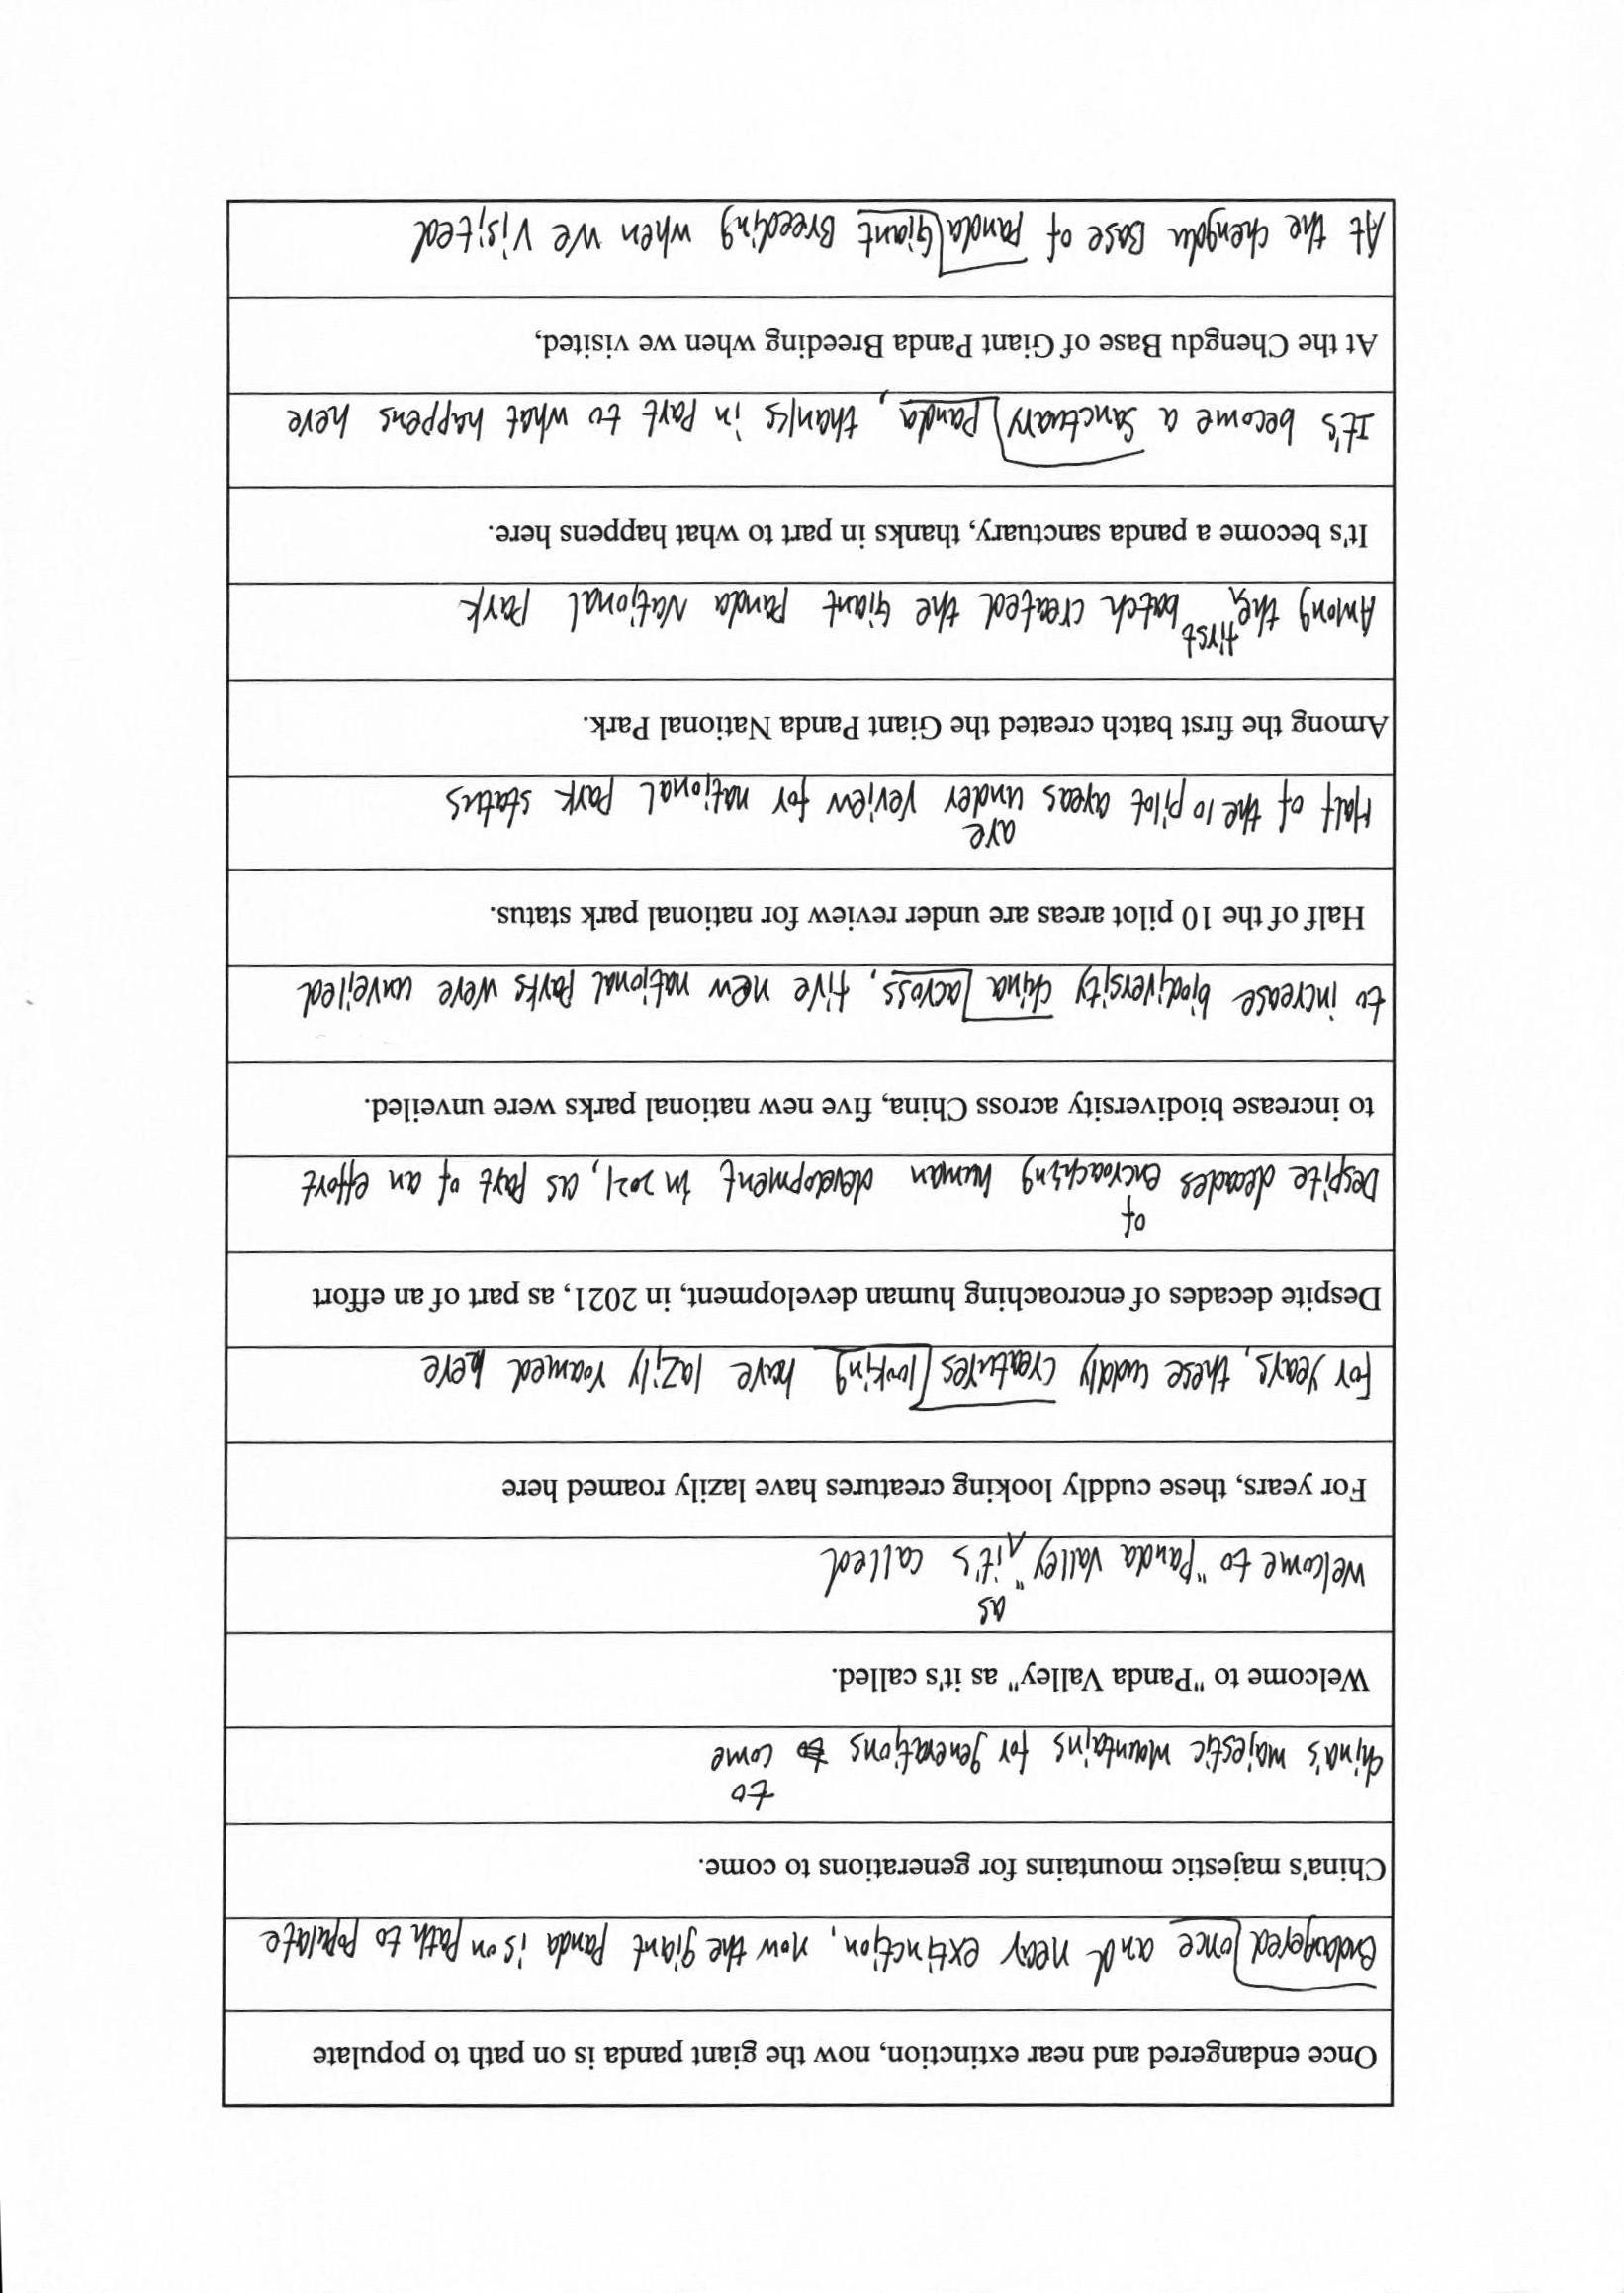 Once endangered and near extinction, now the giant panda is on path to populate
Endagered once and near extinction, now the giant Panda is on Path to Populate
China's majestic mountains for generations to come.
China's majestic mountains for generations to come
Welcome to "Panda Valley" as it's called.
Welcome to "Panda Valley" as it's called
For years, these cuddly looking creatures have lazily roamed here
For years, these cuddly creatures looking have lazily roamed here
Despite decades of encroaching human development, in 2021, as part of an effort
Despite decades of encroaching human development in 2021, as Part of an effort
to increase biodiversity across China, five new national parks were unveiled.
to increase biodiversity China across, five new national Parks were unveiled
Half of the 10 pilot areas are under review for national park status.
Half of the 10 pilot areas are under review for national Park status
Among the first batch created the Giant Panda National Park.
Among the first batch created the Giant Panda National Park
It's become a panda sanctuary, thanks in part to what happens here.
It's become a Sanctuary Panda, thanks in Part to what happens here
At the Chengdu Base of Giant Panda Breeding when we visited,
At the chengdu Base of Panda Giant Breeding when we visited